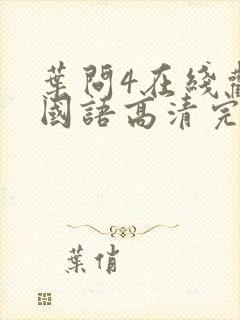 葉問4在綫
國語高清完
葉俏